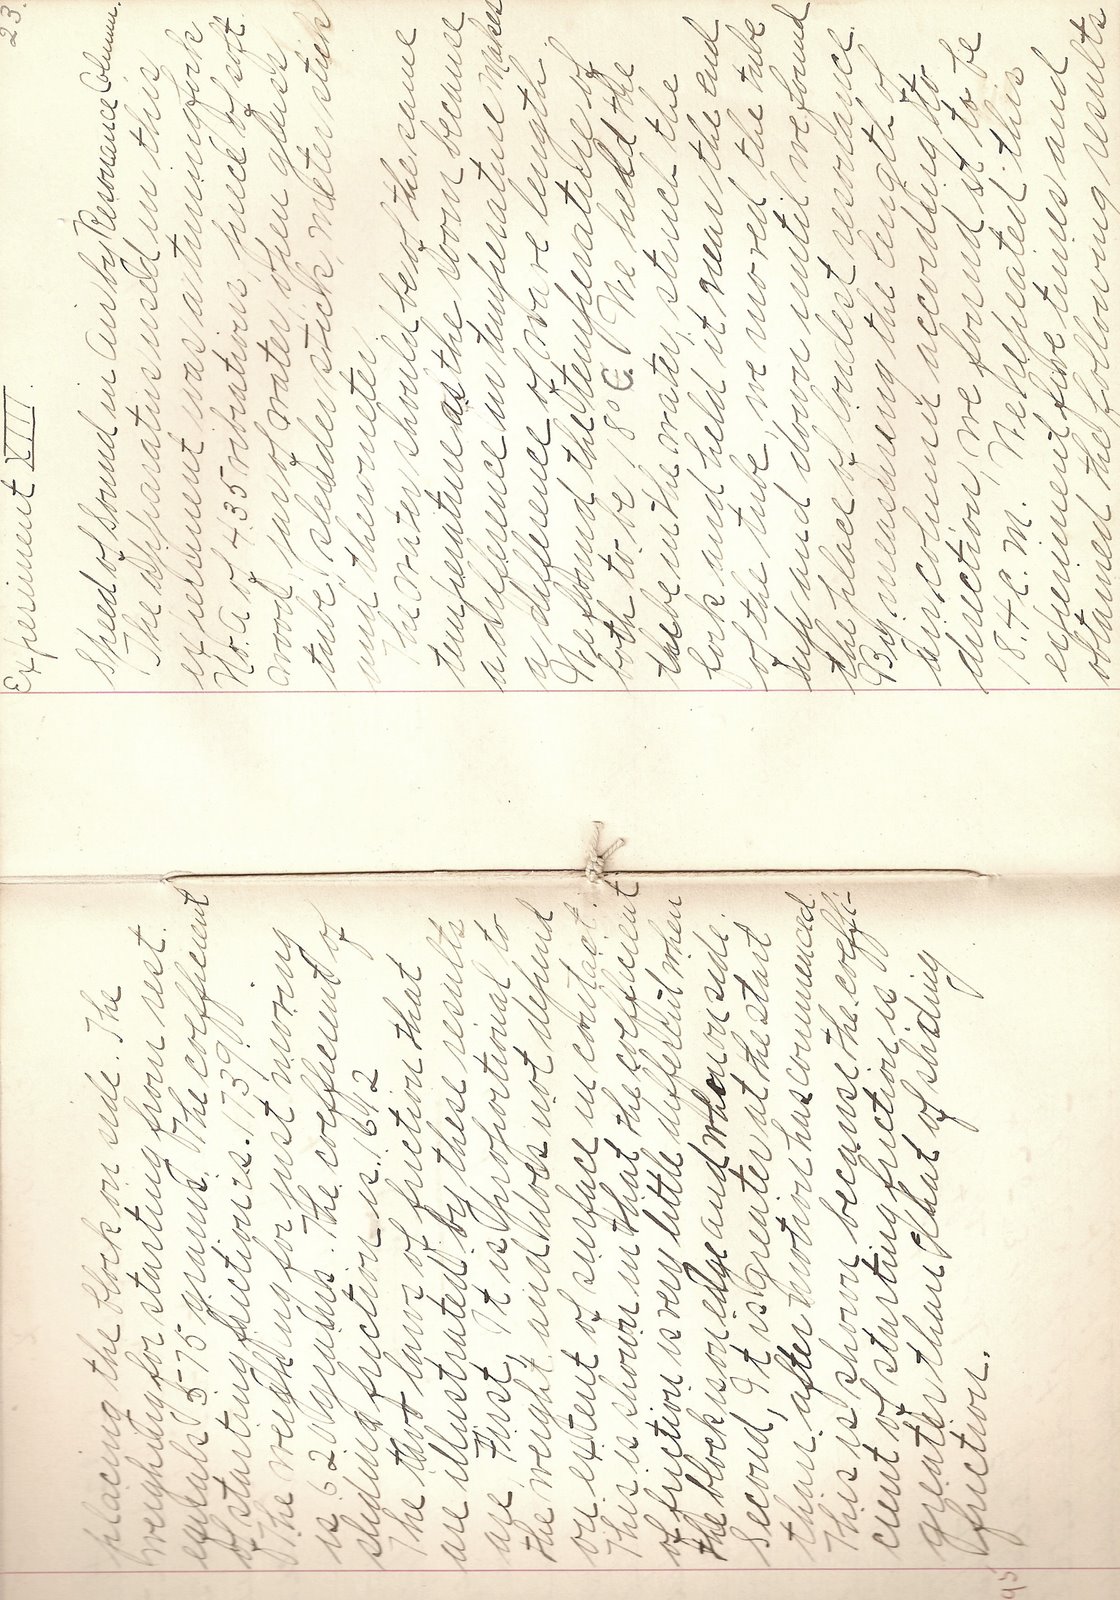 placing the block on side. The
weighing for starting from rest.
equals 575 grams. The coefficient
of starting friction is .1739.
The weighing for just moving
is 520 grams. The coefficient of
sliding friction is .1642
The two laws of friction that
are illustrated by these results
are, First, It is proportional to
the weight and does not depend
on extent of surface in contact.
This is shown in that the coefficient
of friction is very little different when
the block is on edge and when on side.
Second, It is greater at the start
than after motion has commenced
This is shown because the coeffi-
cient of starting friction is
greater than that of sliding
friction.
95
23.
Experiment XIII.
Speed of Sound in Air by Resonance Column.
The apparatus used in this
experiment was a tuning fork
No. a of 435 vibrations, piece of soft
wood, jar of water, open glass
tube, slender stick, meter stick
and thermometer.
The water should be of the same
temperature as the room because
a difference in temperature makes
a difference of wave length
We found the temperature of
both to be 18° C. We held the
tube in the water, struck the
fork and held it near the end
of the tube, we moved the tube
up and down until we found
the place of loudest resonance.
By measuring the length of
air column according to
direction, we found it to be
18.4 c.m. We repeated this
experiment five times and
obtained the following results